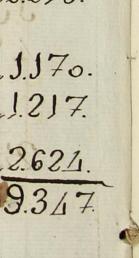 .1.170.
.1.217.
2.624.
9.347.